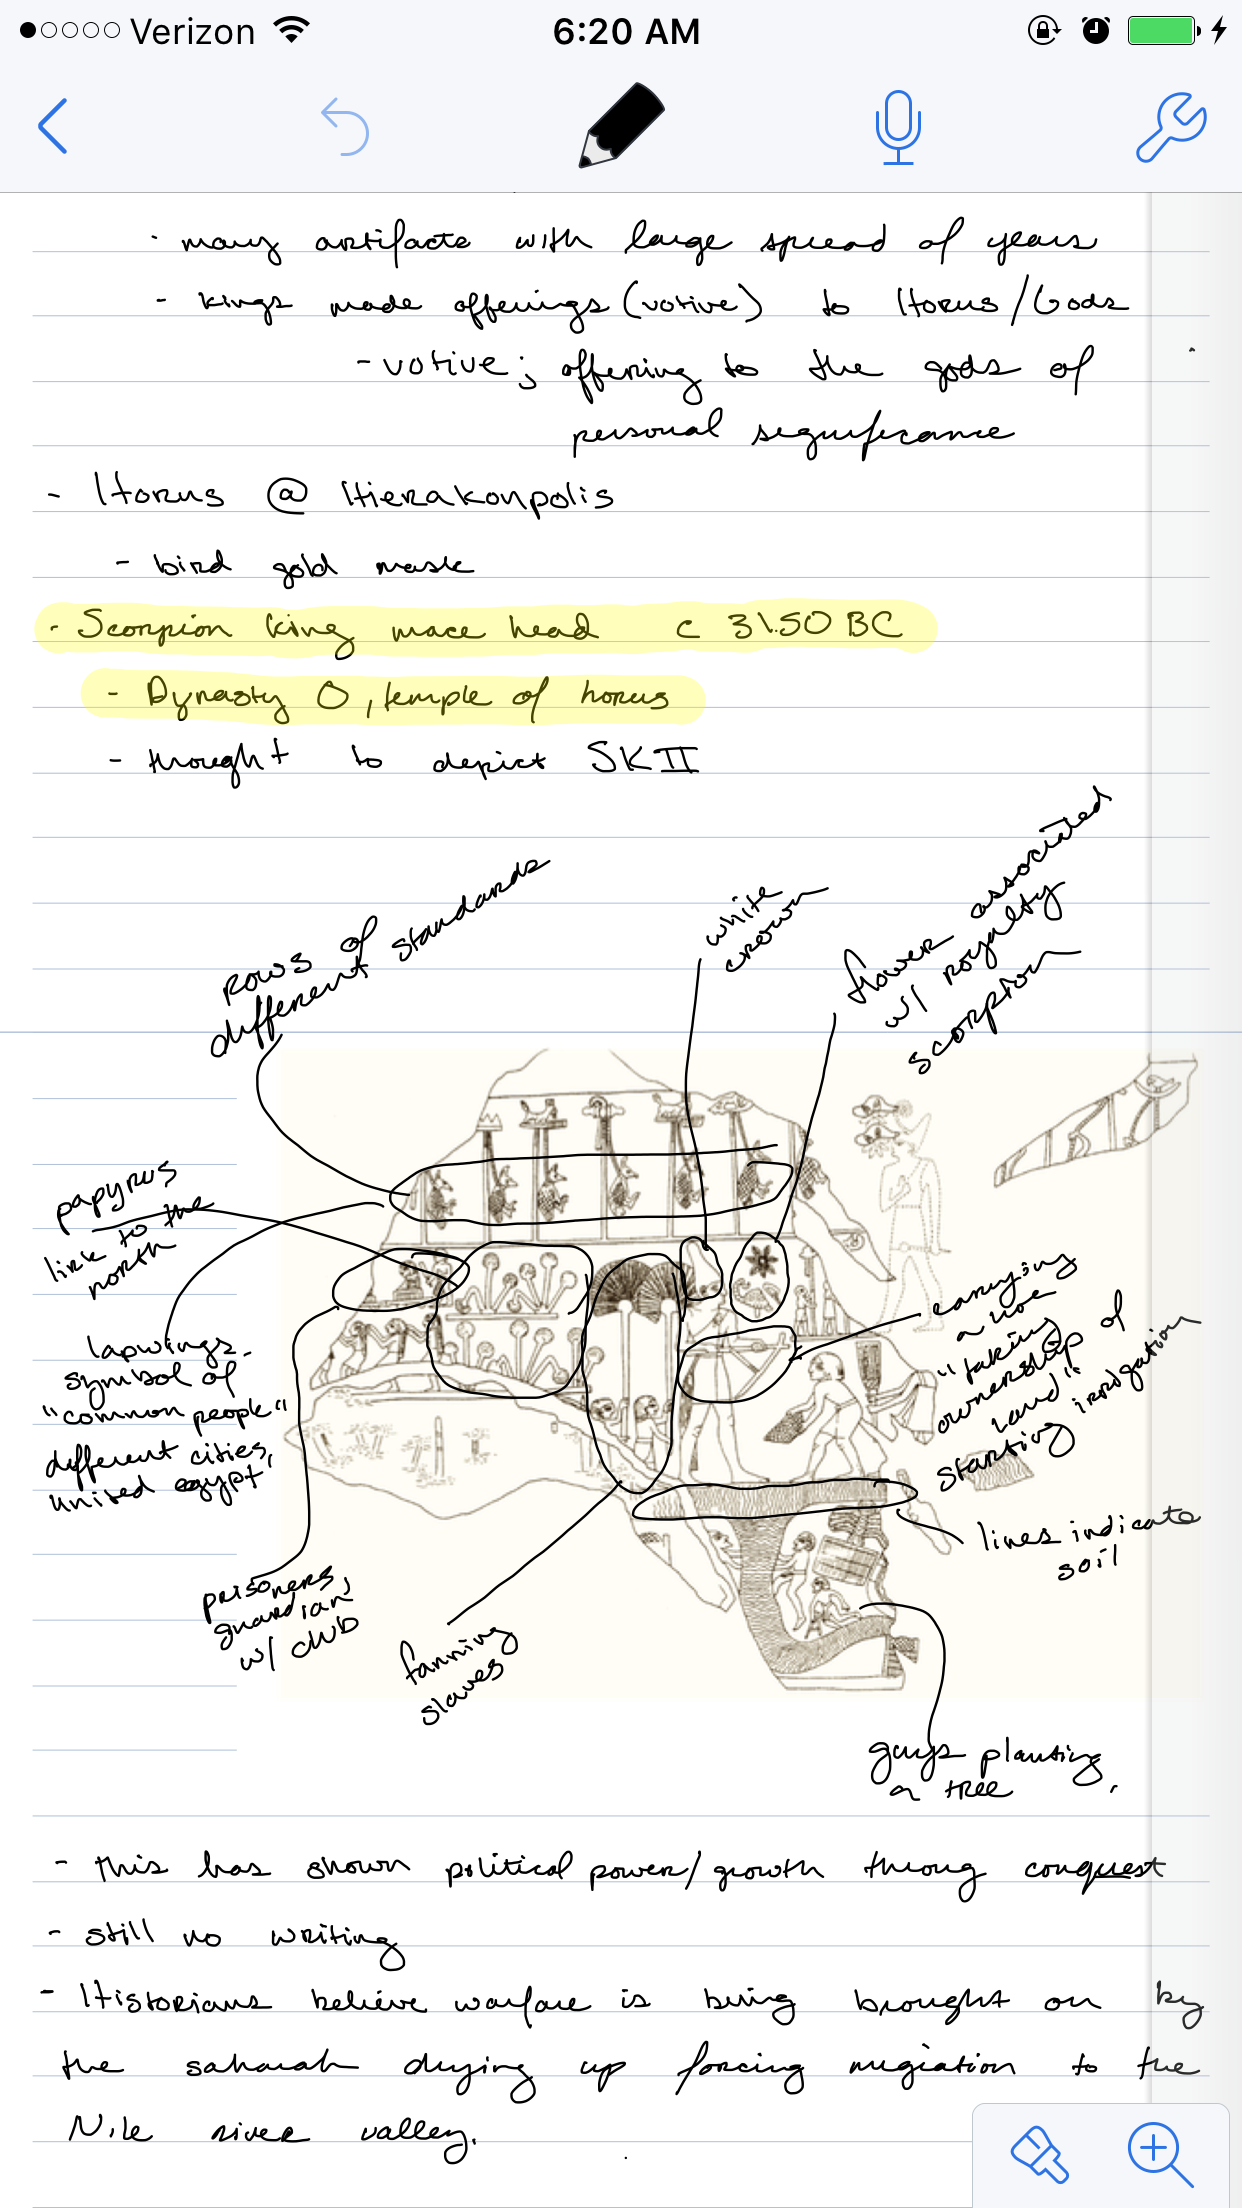 Verizon 6:20 AM
· many artifacts with large spread of years
- kings made offerings (votive) to Horus/Gods
- votive; offering to the gods of
personal significance
- Horus @ Hierakonpolis
- bird gold mask
- Scorpion king mace head c 3150 BC
- Dynasty 0, temple of horus
- thought to depict SKII
rows of
different standards
white
crown
flower associated
w/ royalty
scorpion
papyrus
link to the
north
lapwings-
symbol of
"common people"
different cities,
united egypt
carrying
a hoe
"taking
ownership of
land"
starting irrigation
lines indicate
soil
prisoners,
guardian
w/ club
fanning
slaves
guys planting
a tree
- this has shown political power/growth throug conquest
- still no writing
- Historians believe warfare is being brought on by
the saharah drying up forcing migration to the
Nile river valley.